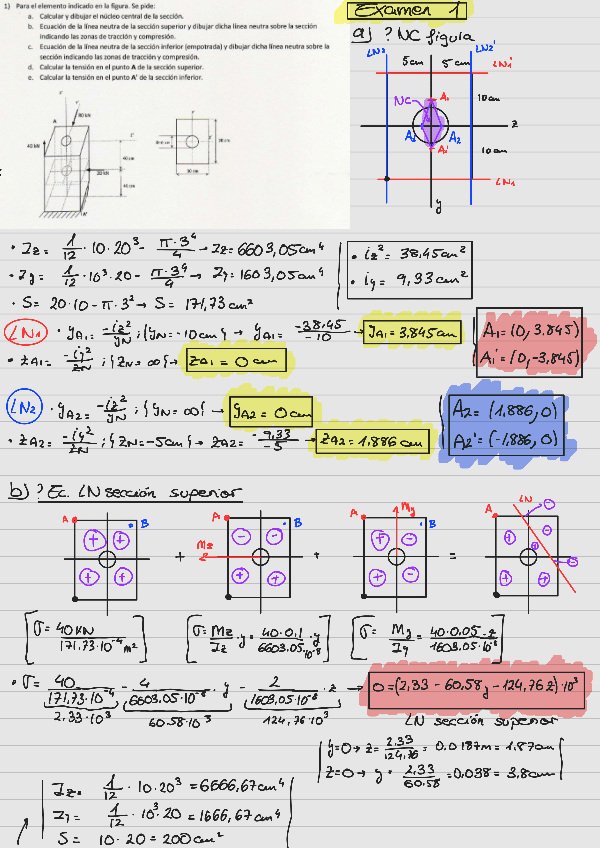 1) Para el elemento indicado en la figura. Se pide:
a. Calcular y dibujar el núcleo central de la sección.
b. Ecuación de la línea neutra de la sección superior y dibujar dicha línea neutra sobre la sección indicando las zonas de tracción y compresión.
c. Ecuación de la línea neutra de la sección inferior (empotrada) y dibujar dicha línea neutra sobre la sección indicando las zonas de tracción y compresión.
d. Calcular la tensión en el punto A de la sección superior.
e. Calcular la tensión en el punto A' de la sección inferior.
Examen 1
a) ? NC figura
LN2 LN2'
5cm 5cm LN1'
NC A1 10cm
A2' A2 z
A1' 10cm
LN1
y
A
40 kN
40 cm
40 cm
A'
· Iz = 1/12 · 10·20³ - π·3⁴/4 → Iz = 6603,05cm⁴
· Iy = 1/12 · 10³·20 - π·3⁴/4 → Iy = 1603,05cm⁴
· S = 20·10 - π·3² → S = 171,73cm²
· iz² = 38,45cm²
· iy = 9,33cm²
LN1 · yA1 = -iz²/yN ; {yN = -10cm} → yA1 = -38,45/-10 → yA1 = 3,845cm
· zA1 = -iy²/zN ; {zN = ∞} → zA1 = 0cm
A1 = (0, 3,845)
A1' = (0, -3,845)
LN2 · yA2 = -iz²/yN ; {yN = ∞} → yA2 = 0cm
· zA2 = -iy²/zN ; {zN = -5cm} → zA2 = -9,33/-5 → zA2 = 1,886cm
A2 = (1,886, 0)
A2' = (-1,886, 0)
b) ? Ec. LN sección superior
A B + Mz A B + A My B = A LN
[σ = 40KN/171,73·10⁻⁴m²] [σ = Mz/Iz · y = 40·0,1/6603,05·10⁻⁸ · y] [σ = My/Iy = 40·0,05·z/1603,05·10⁻⁸]
· σ = 40/171,73·10⁻⁴ - 4/6603,05·10⁻⁸ · y - 2/1603,05·10⁻⁸ · z → 0 = (2,33 - 60,58y - 124,76z)·10³
2,33·10³ 60.58·10³ 124,76·10³
LN sección superior
y=0 → z = 2,33/124,76 = 0,0187m = 1,87cm
z=0 → y = 2,33/60,58 = 0,038 = 3,8cm
Iz = 1/12 · 10·20³ = 6666,67cm⁴
Iy = 1/12 · 10³·20 = 1666,67cm⁴
S = 10·20 = 200cm²